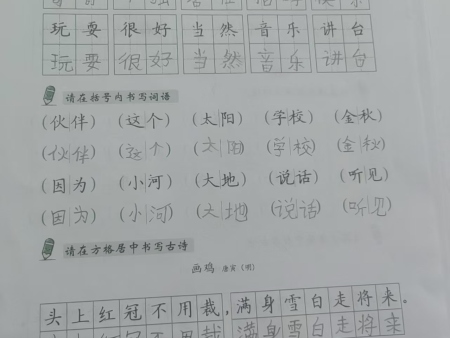 玩耍 很好 当然 音乐 讲台
玩耍 很好 当然 音乐 讲台
请在括号内书写词语
(伙伴) (这个) (太阳) (学校) (金秋)
(伙伴) (这个) (太阳) (学校) (金秋)
(因为) (小河) (大地) (说话) (听见)
(因为) (小河) (大地) (说话) (听见)
请在方格居中书写古诗
画鸡 唐寅(明)
头上红冠不用裁,满身雪白走将来。
头上红冠不用裁 满身雪白走将来